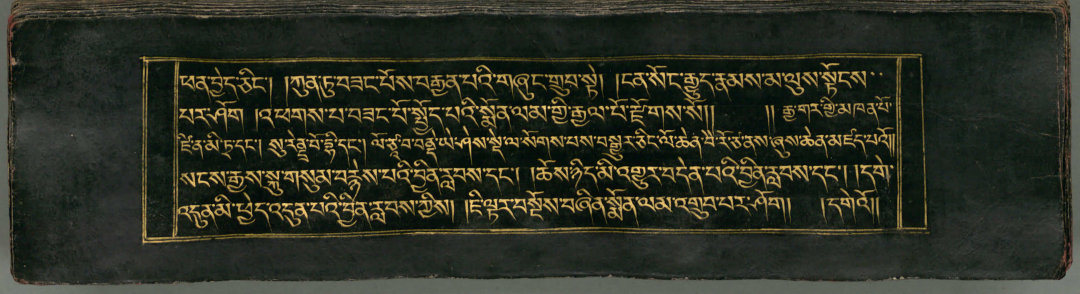 ཕན་བྱེད་ཅིང༌། །ཀུན་ཏུ་བཟང་པོས་བརྒྱན་པའི་གཞུང་གྲུབ་སྟེ། །ངན་སོང་རྒྱུད་རྣམས་མ་ལུས་སྟོངས་
པར་ཤོག །འཕགས་པ་བཟང་པོ་སྤྱོད་པའི་སྨོན་ལམ་གྱི་རྒྱལ་པོ་རྫོགས་སོ།། །། རྒྱ་གར་གྱི་མཁན་པོ་
ཛི་ན་མི་ཏྲ་དང༌། སུ་རེནྡྲ་བོ་དྷི་དང༌། ལོ་ཙཱ་བ་བནྡེ་ཡེ་ཤེས་སྡེ་ལ་སོགས་པས་བསྒྱུར་ཅིང་ལོ་ཆེན་བཻ་རོ་ཙ་ནས་ཞུས་ཆེན་མཛད་པའོ།།
སངས་རྒྱས་སྐུ་གསུམ་བརྙེས་པའི་བྱིན་རླབས་དང༌། །ཆོས་ཉིད་མི་འགྱུར་བདེན་པའི་བྱིན་རླབས་དང༌། །དགེ་
འདུན་མི་ཕྱེད་འདུན་པའི་བྱིན་རླབས་ཀྱིས། །ཇི་ལྟར་བསྔོས་བཞིན་སྨོན་ལམ་འགྲུབ་པར་ཤོག།  །དགེའོ།།